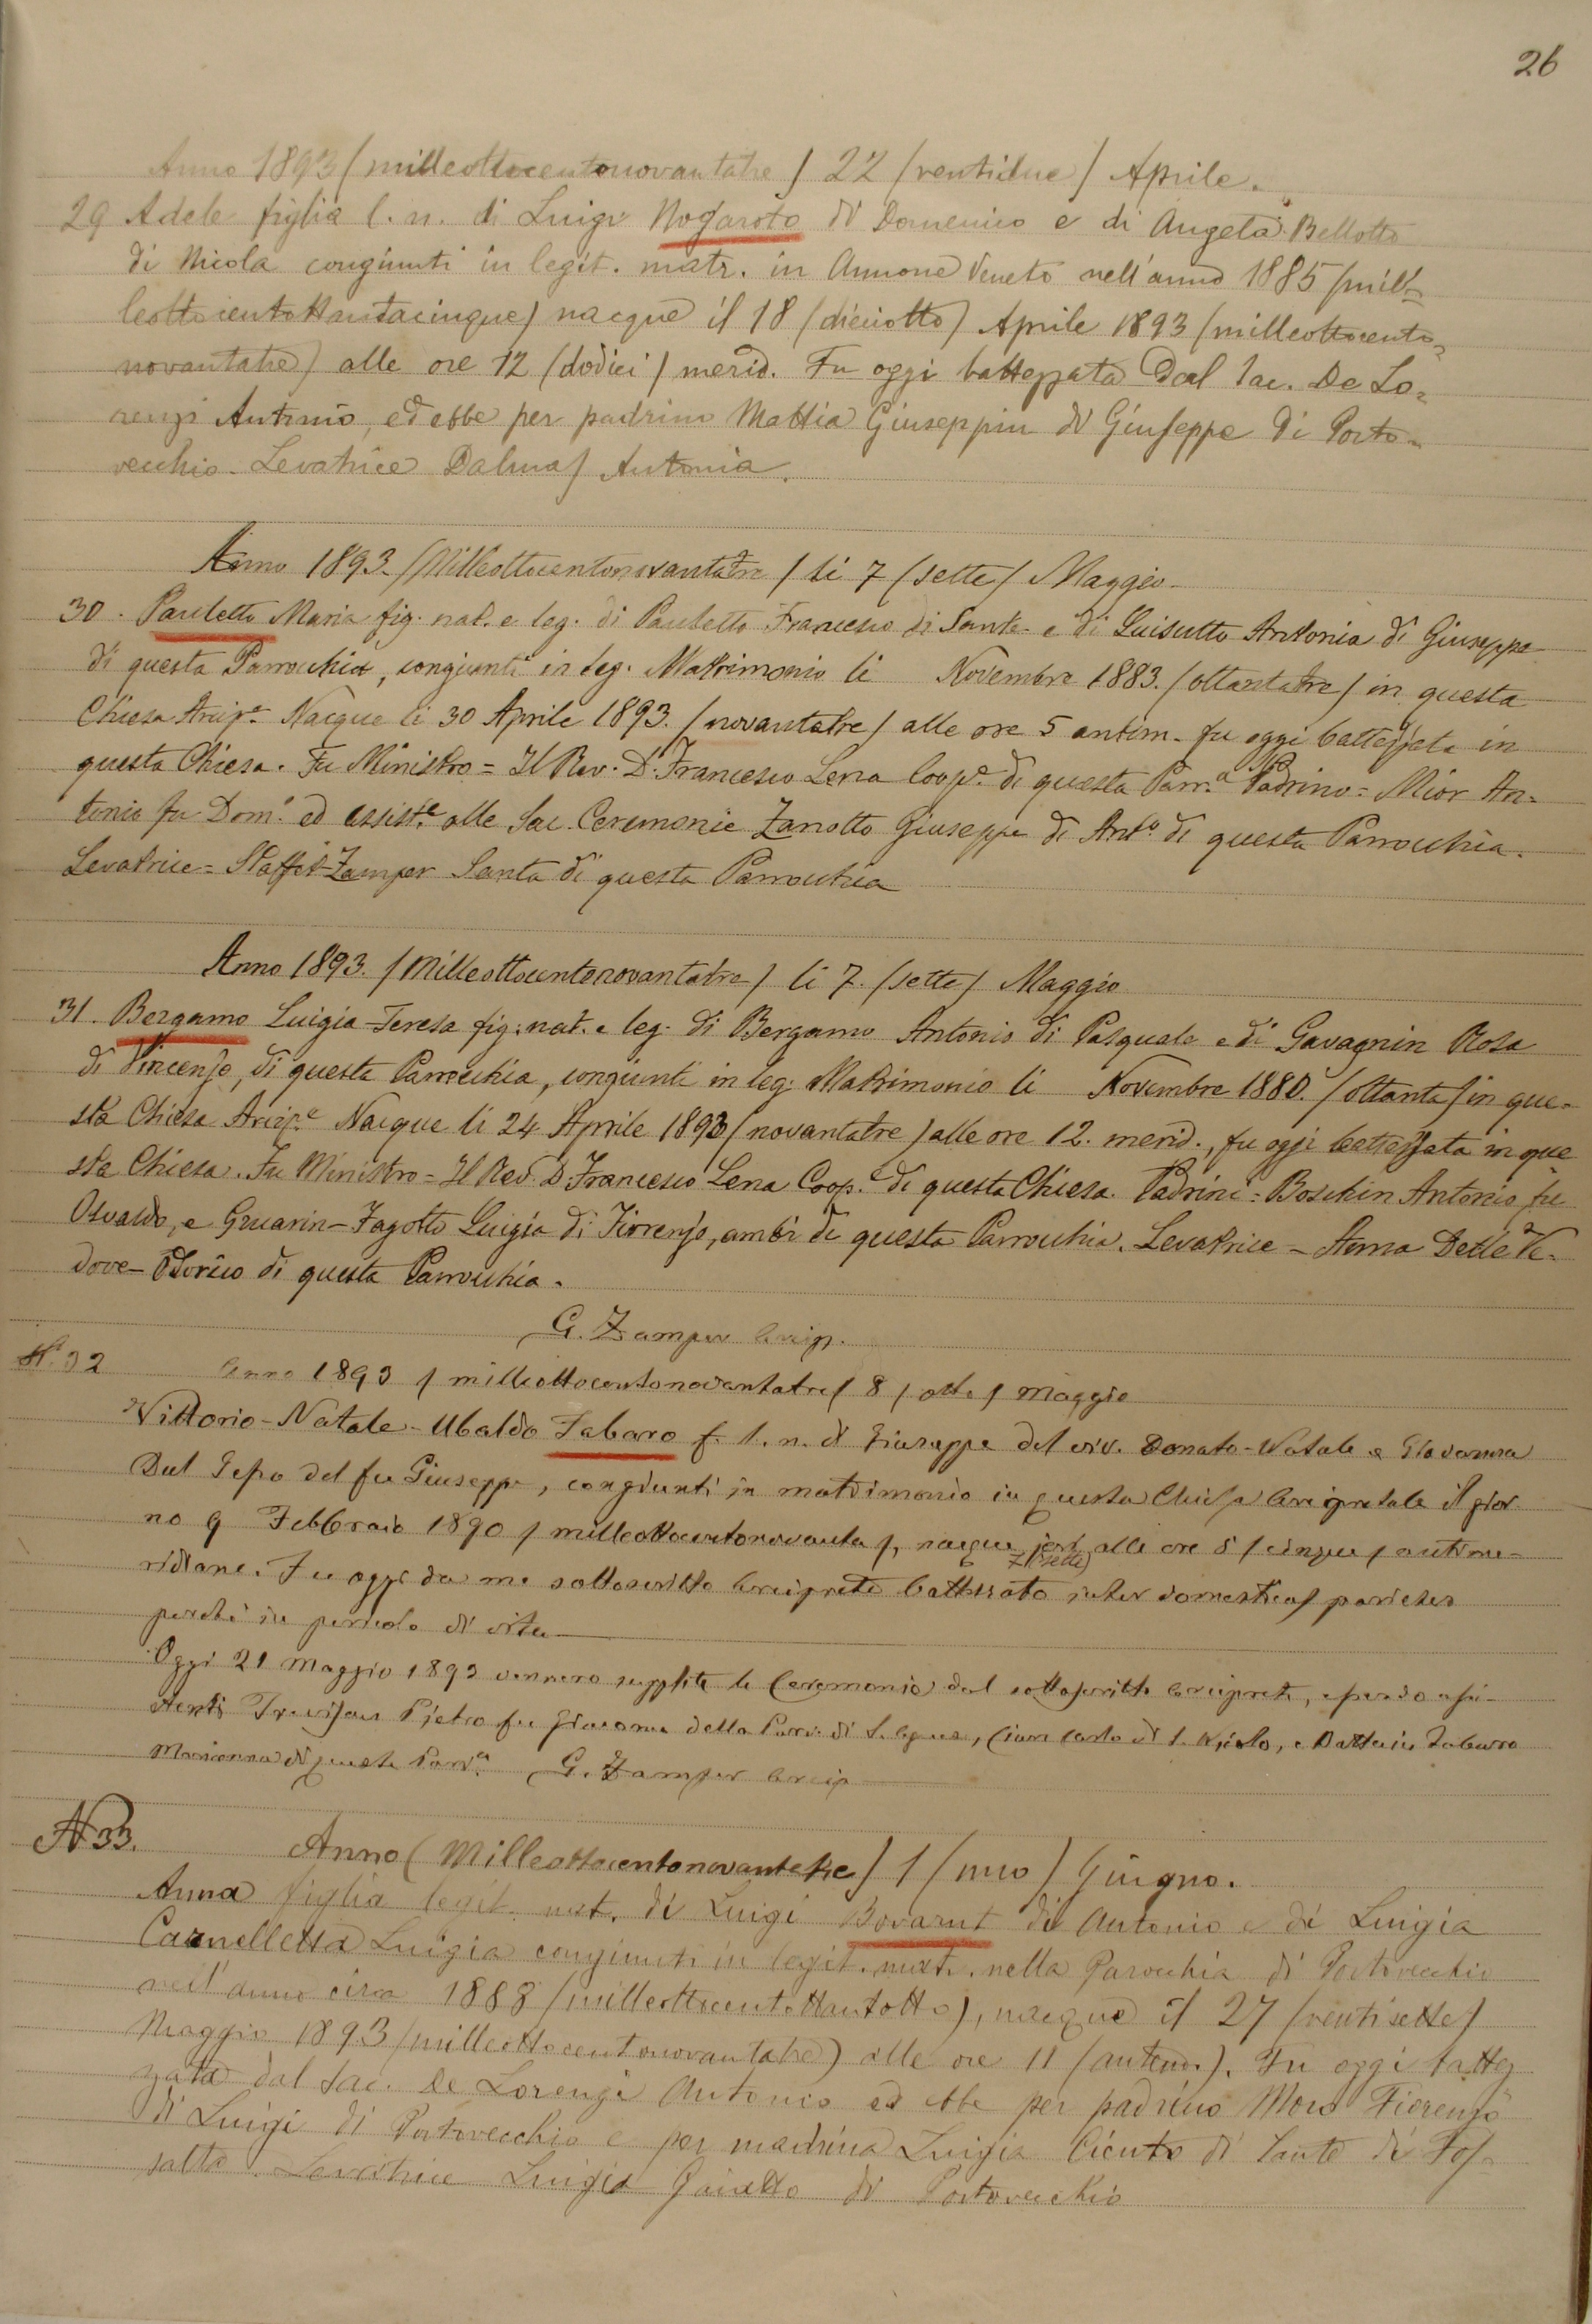 26
Anno 1893 (milleottocentonovantatre) 22 (ventidue) Aprile.
29 Adele figlia l. n. di Luigi Nogaroto di Domenico e di Angela Bellotto
di Nicola congiunti in legit. matr. in Annone Veneto nell'anno 1885 (mil-
leottocentottantacinque) nacque il 18 (dieciotto) Aprile 1893 (milleottocento-
novantatre) alle ore 12 (dodici) merid. Fu oggi battezzata dal Sac. De Lo-
renzi Antonio, ed ebbe per padrino Mattia Giuseppin di Giuseppe di Porto-
vecchio. Levatrice Dalmas Antonia.
Anno 1893. (Milleottocentonovantatre) li 7 (sette) Maggio.
30. Pauletto Maria fig. nat. e leg. di Pauletto Francesco di Sante e di Luisutto Antonia di Giuseppe
di questa Parrocchia, congiunti in leg. Matrimonio li Novembre 1883. (ottantatre) in questa
Chiesa Arcip.e Nacque li 30 Aprile 1893. (novantatre) alle ore 5 antim. fu oggi battezzata in
questa Chiesa. Fu Ministro = Il Rev. D. Francesco Lena Coop.e di questa Parr.a Padrino = Mior An-
tonio fu Dom.o ed assist.e alle Sac. Ceremonie Zanotto Giuseppe di Ant.o di questa Parrocchia.
Levatrice = Zamper Santa di questa Parrocchia
Anno 1893. (Milleottocentonovantatre) li 7. (sette) Maggio
31. Bergamo Luigia-Teresa fig. nat. e leg. di Bergamo Antonio di Pasquale e di Gavagnin Rosa
di Vincenzo, di questa Parrocchia, congiunti in leg. Matrimonio li Novembre 1880. (ottanta) in que-
sta Chiesa Arcip.e Nacque li 24 Aprile 1893 (novantatre) alle ore 12. merid., fu oggi battezzata in que
sta Chiesa. Fu Ministro = Il Rev. D. Francesco Lena Coop.e di questa Chiesa. Padrini = Boschin Antonio fu
Osvaldo, e Gruarin-Fagotto Luigia di Fiorenzo, ambi di questa Parrocchia. Levatrice - Anna Delle Ve-
dove-Odorico di questa Parrocchia.
G. Zamper Arcip.
N. 32 Anno 1893 (milleottocentonovantatre) 8 (otto) Maggio
Vittorio-Natale-Ubaldo Fabaro f. l. n. di Giuseppe del viv. Donato-Natale e Giovanna
Dal Sepo del fu Giuseppe, congiunti in matrimonio in questa Chiesa Arcipretale il gior
no 9 Febbraio 1890 (milleottocentonovanta), nacque jeri alle ore 5 (cinque) antime-
7 (sette)
ridiane. Fu oggi da me sottoscritto Arciprete battezzato inter domesticos parietes
perchè in pericolo di vita
Oggi 21 Maggio 1893 vennero supplite le Ceremonie dal sottoscritto Arciprete, essendo assi-
stenti Trevisan Pietro fu Giacomo della Parr. di S. Agnese, Carlo di S. Nicolo, e
Marianna di questa Parr.a G. Zamper Arcip
N 33. Anno (Milleottocentonovantatre) 1 (uno) Giugno.
Anna figlia legit. nat. di Luigi Bovarut di Antonio e di Luigia
Carnelletta Luigia congiunti in legit. matr. nella Parocchia di Portovecchio
nell'anno circa 1888 (milleottocentottantotto), nacque il 27 (ventisette)
Maggio 1893 (milleottocentonovantatre) alle ore 11 (antem.). Fu oggi battez
zata dal Sac. De Lorenzi Antonio ed ebbe per padrino Moro Fiorenzo
di Luigi di Portovecchio e per madrina Luigia Cicuto di Sante di Fos-
salta. Levatrice Luigia di Portovecchio